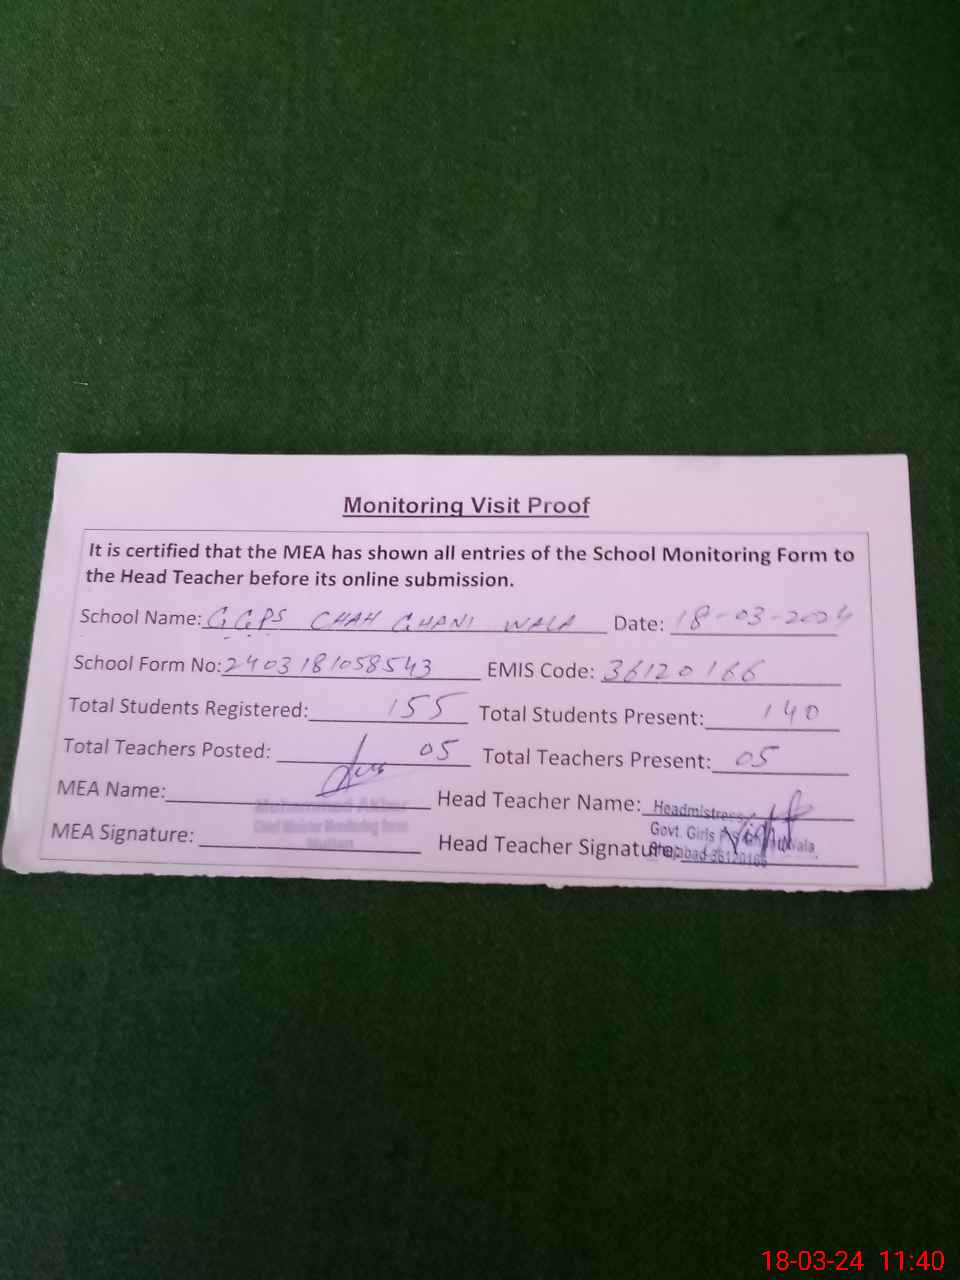 Monitoring Visit Proof
It is certified that the MEA has shown all entries of the School Monitoring Form to
the Head Teacher before its online submission.
School Name: GGPS CHAH GHANI WALA Date: 18-03-2024
School Form No: 2403181058543 EMIS Code: 36120166
Total Students Registered: 155 Total Students Present: 140
Total Teachers Posted: 05 Total Teachers Present: 05
MEA Name: Head Teacher Name: Headmistress
Muhammad Akbar
Govt. Girls wala
MEA Signature: Head Teacher Signature:
Multan
36120166
18-03-24 11:40